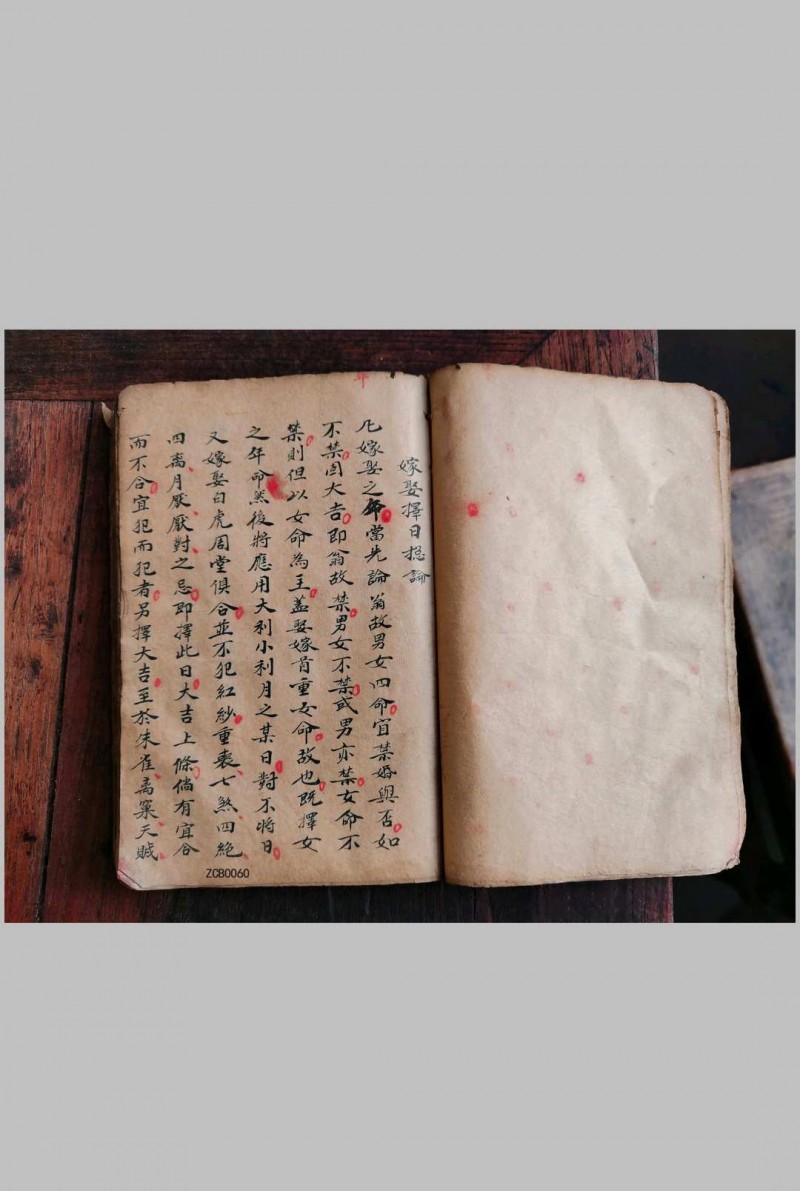 嫁娶擇日捴論
凡嫁娶之年當先論翁故男女四命宜禁婚與否如
不禁固大吉即翁故禁男女不禁或男亦禁女命不
禁則但以女命為主蓋娶嫁首重女命故也既擇女
之年命然後將應用大利小利月之某日對不將日
又嫁娶白虎周堂俱合並不犯紅紗重喪七煞四絕
四离月厭厭對之忌即擇此日大吉上條倘有宜合
而不合宜犯而犯者另擇大吉至於朱雀离窠天賊
ZCB0060